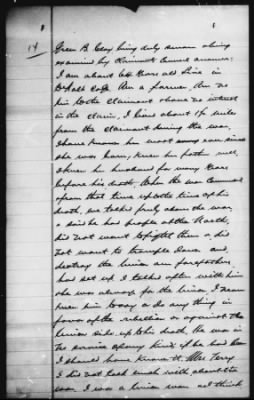 14
Green B. Clay being duly sworn & being
examined by claimants Counsel answers:
I am about 64 years old live in
DeKalb Co Am a farmer, Am no
kin to the claimant & have no interest
in the claim, I lived about 1½ miles
from the claimant during the war,
I have known her most ever since
she was born, knew her father well,
& knew her husband for many years
before his death, When the war commenced
& from that time up to the time of his
death, we talked freely about the war,
& said he had people at the North,
did not want to fight them & did
not want to trample down and
destroy the Union our forefathers
had set up I talked often with him
she was always for the Union, I never
knew him to say or do any thing in
favor of the rebellion or against the
Union side up to his death, He was in
no service of any kind, if he had been
I should have known it. Mrs Terry
& I did not talk much with about the
war I was a Union man